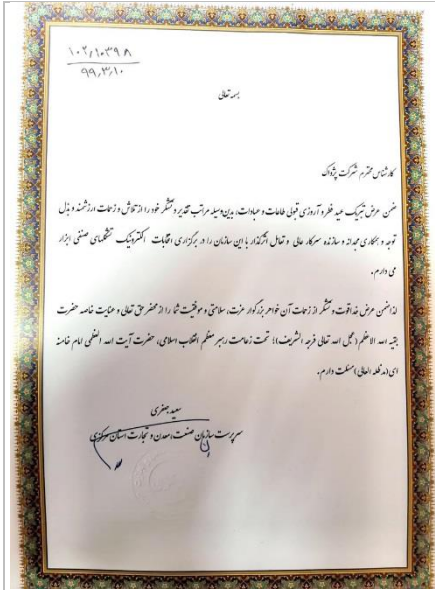 ۱۰۲/۱۰۳۹۸
۹۹/۳/۱۰
بسمه تعالی
کارشناس محترم شرکت پژواک
ضمن عرض تبریک عید فطر و آرزوی قبولی طاعات و عبادات، بدین وسیله مراتب تقدیر و تشکر خود را از تلاش و زحمات ارزشمند و بذل
توجه و همکاری مجدانه و سازنده سرکار عالی و تعامل اثرگذار با این سازمان را در برگزاری انتخابات الکترونیک تشکلهای صنفی ابراز
می دارم.
لذا ضمن عرض خداقوت و تشکر از زحمات آن خواهر بزرگوار عزت، سلامتی و موفقیت شما را از محضر حق تعالی و عنایت خاصه حضرت
بقیه الله الاعظم (عجل الله تعالی فرجه الشریف)؛ تحت زعامت رهبر معظم انقلاب اسلامی، حضرت آیت الله العظمی امام خامنه
ای (مد ظله العالی) مسئلت دارم.
سعید جعفری
سرپرست سازمان صنعت، معدن و تجارت استان مرکزی